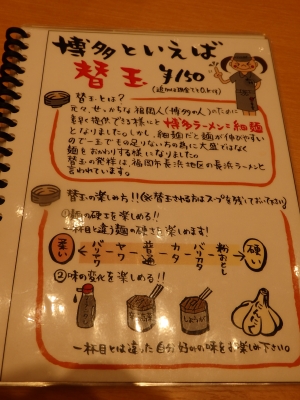 博多といえば
替玉 ¥150
替玉とは?
元々、せっかちな福岡人(博多の人)のために
素早く提供できる様にと博多ラーメン=細麺
となりました。しかし、細麺だと麺が伸びやすい
ので一玉でも足りない方の為に大盛ではなく
麺をおかわりする様になりました。
替玉の発祥は、福岡市長浜地区の長浜ラーメンと
言われています。
替玉の楽しみ方!!(※替玉される方はスープを残しておいて下さい)
①麺の硬さを楽しめる!!
一杯目と違う麺の硬さを楽しめます!
柔い ← バリヤワ ヤワ 普通 カタ バリカタ 粉おとし → 硬い
②味の変化を楽しめる!!
にんにく
一杯目とは違った自分好みの味をお楽しみ下さい。